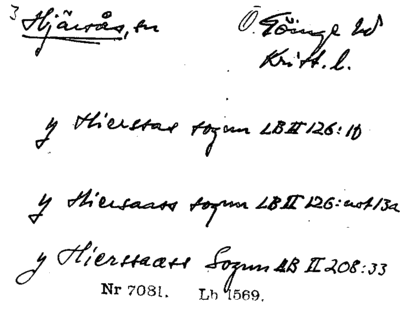 3 Hjärsås, sn Ö. Göinge hd
Krist. l.
y Hierssas sognn LB II 126:10
y Hiersaass sognn LB II 126: not 13a
y Hierssaass Sognn LB II 208:33
Nr 7081. Lb 1569.